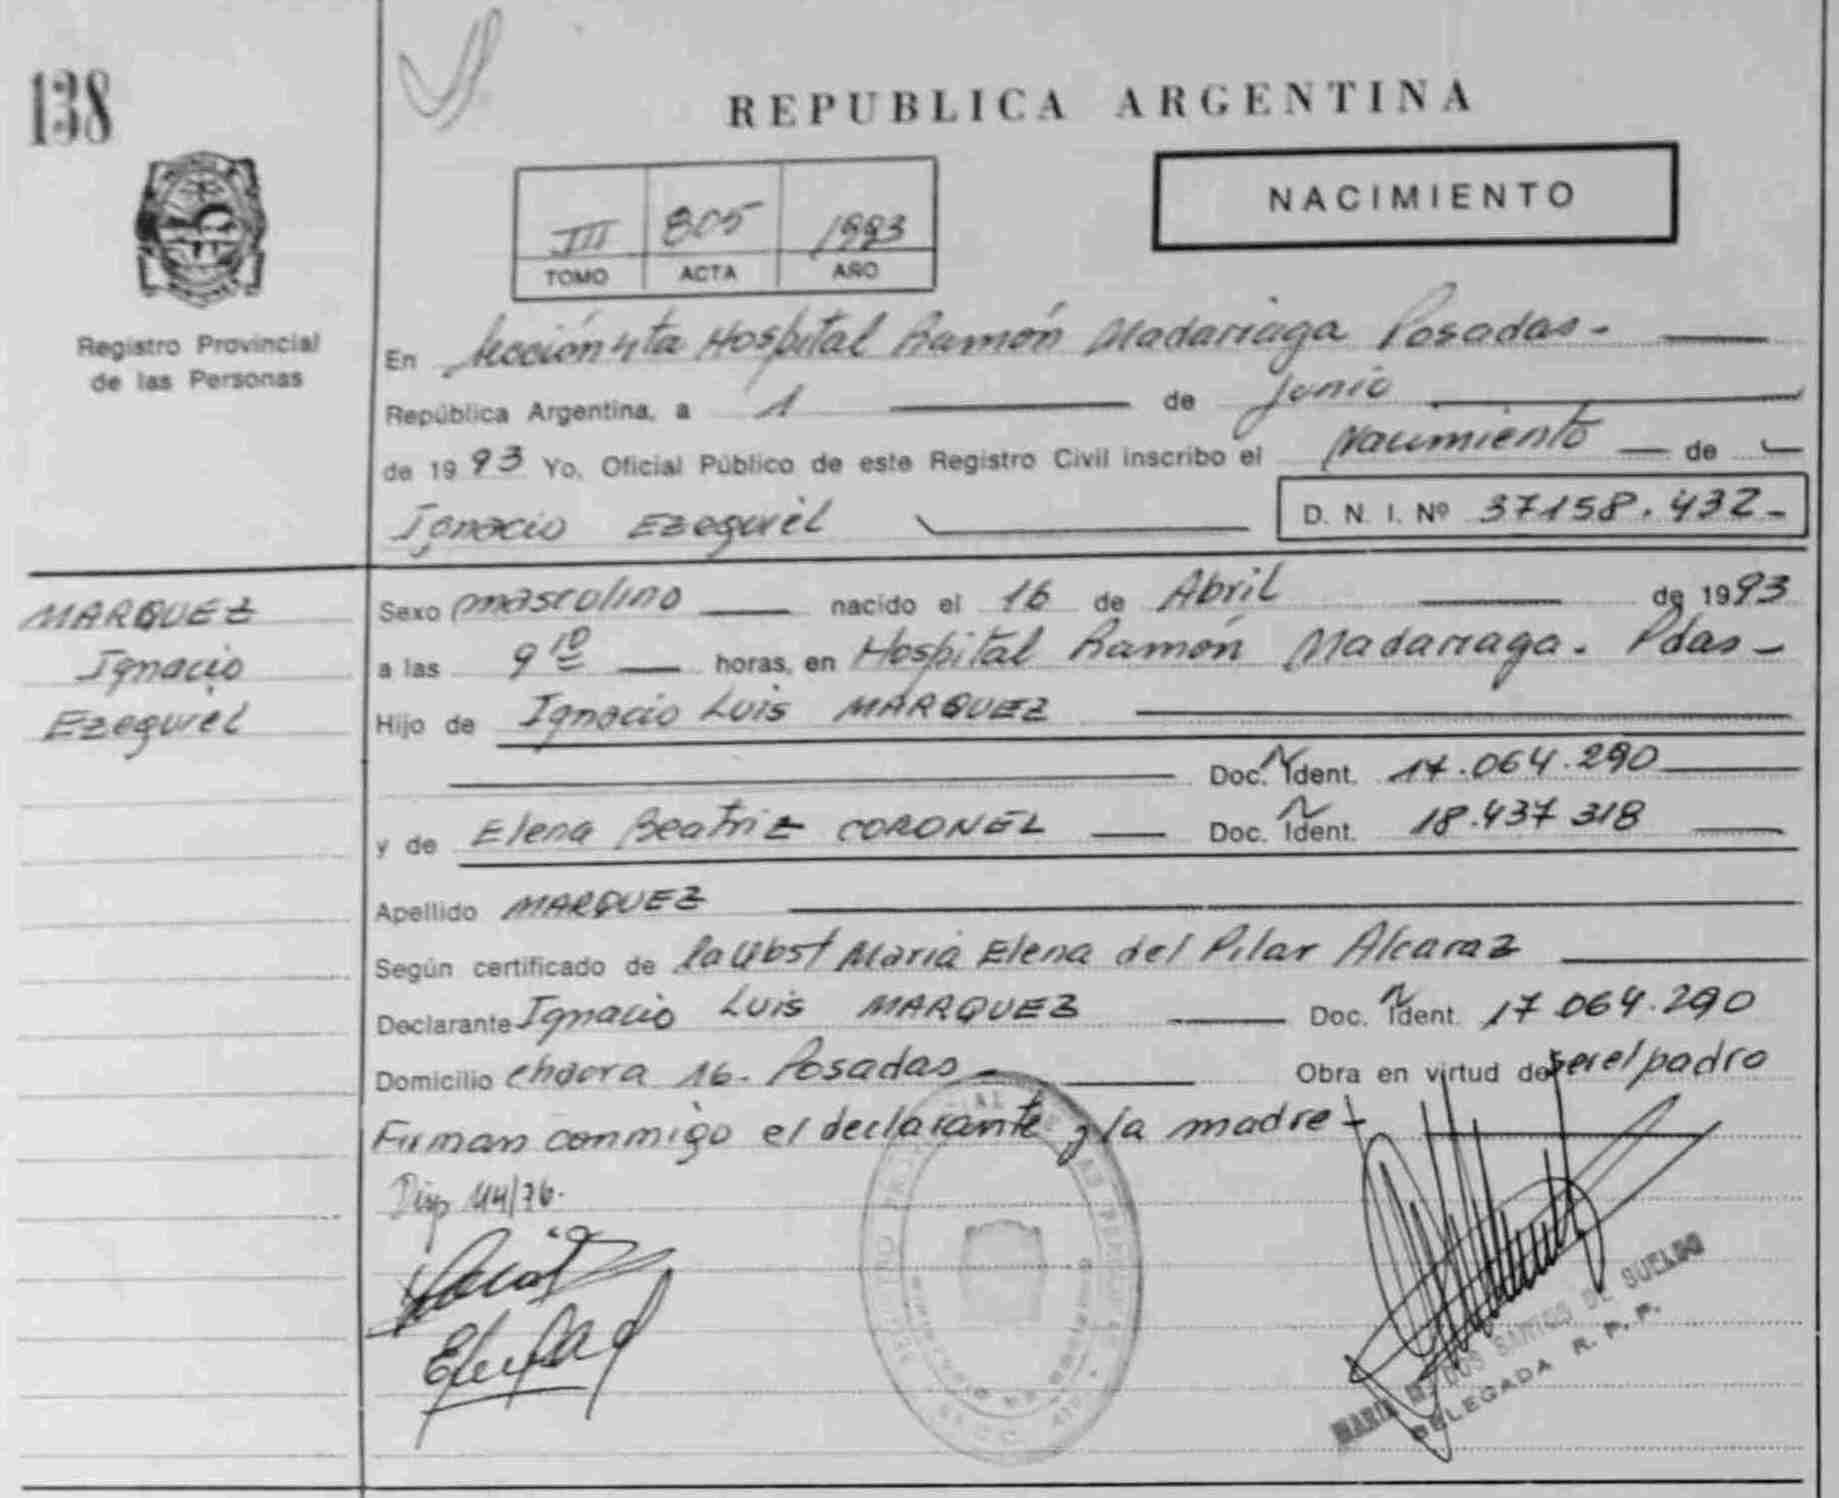 138
REPUBLICA ARGENTINA
NACIMIENTO
III 805 1993
TOMO ACTA AÑO
Registro Provincial
de las Personas
En Sección 4ta Hospital Ramón Madariaga Posadas -
República Argentina, a 1 de junio
de 1993 Yo, Oficial Público de este Registro Civil inscribo el Nacimiento de
Ignacio Ezequiel
D. N. I. Nº 37158.432-
MARQUEZ
Ignacio
Ezequiel
Sexo masculino nacido el 16 de Abril de 1993
a las 9 10 horas, en Hospital Ramón Madariaga. Pdas -
Hijo de Ignacio Luis MARQUEZ
Doc. Ident. 17.064.290
y de Elena Beatriz CORONEL Doc. Ident. 18.437 318
Apellido MARQUEZ
Según certificado de la Obst María Elena del Pilar Alcaraz
Declarante Ignacio Luis MARQUEZ Doc. Ident. 17 064.290
Domicilio chacra 16. Posadas - Obra en virtud de ser el padre
Firman conmigo el declarante y la madre -
Disp 114/76.
DOS SANTOS DE SUELDO
DELEGADA R. P. P.